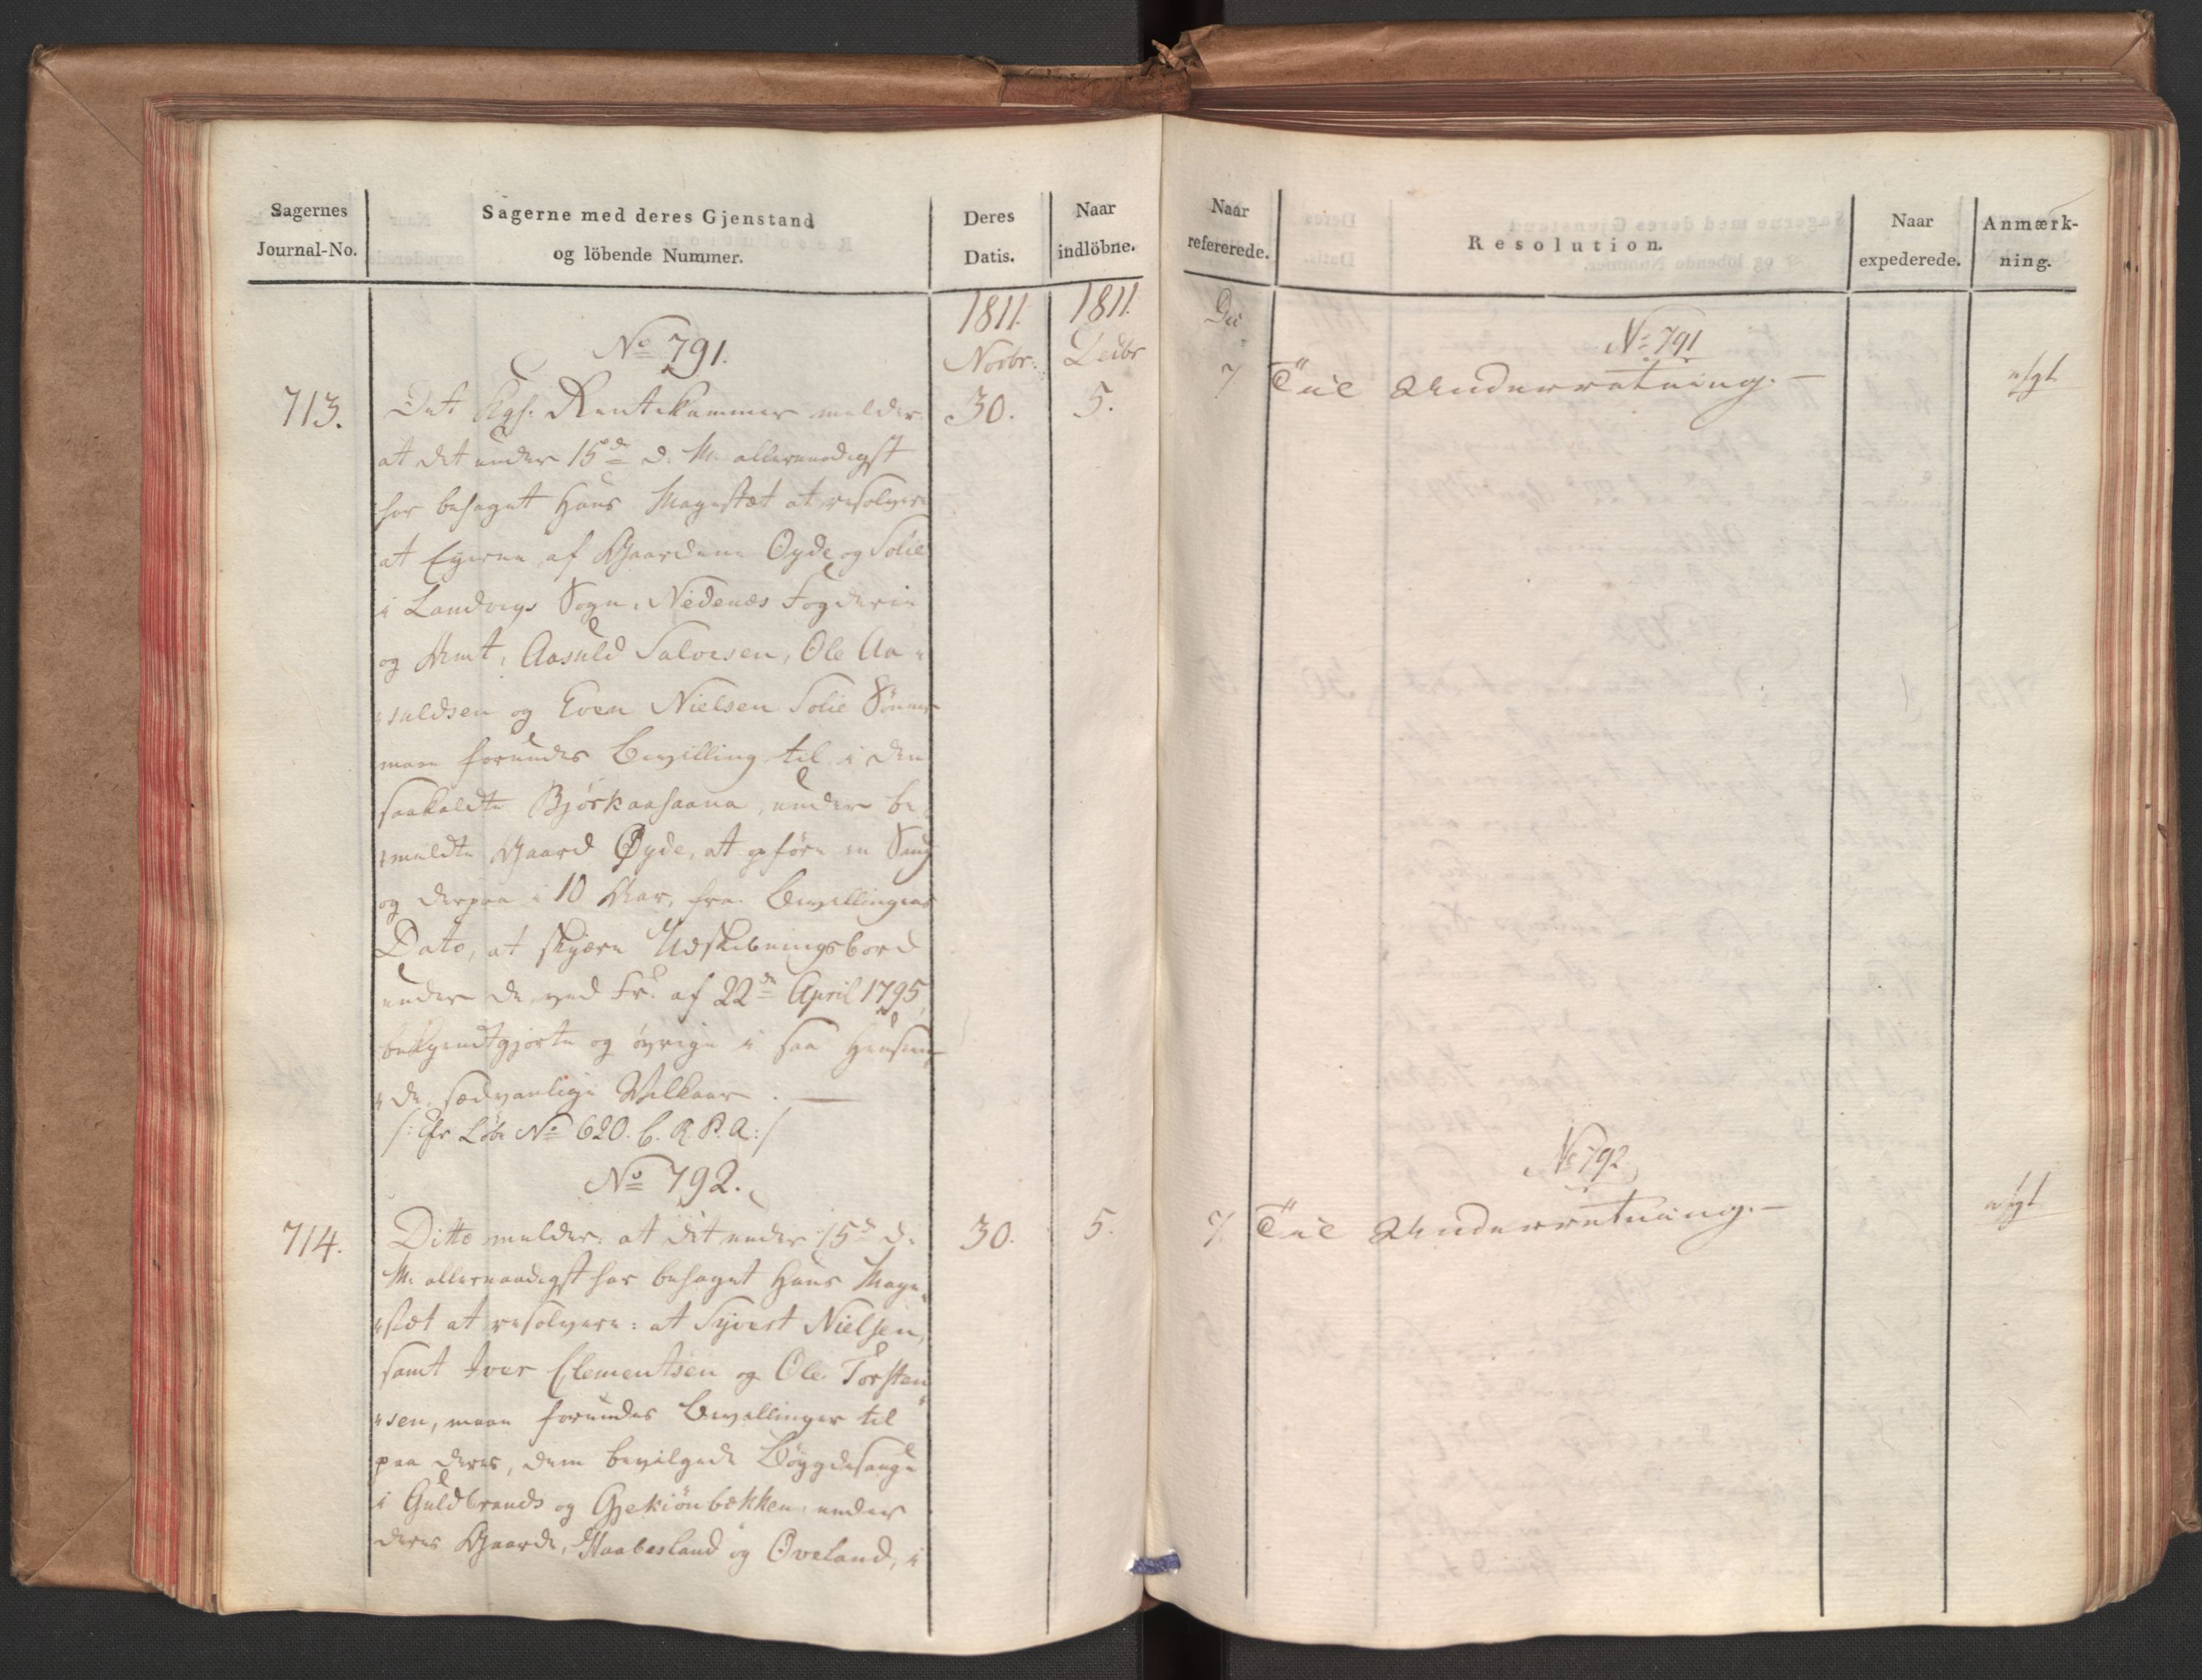 Sagernes
Journal-No.
Sagerne med deres Gjenstand
og löbende Nummer.
Deres
Datis.
Naar
indlöbne.
1811.
1811.
Novbr:
Decbr
No 791.
713.
Det Kgl. Rentekammer melder
30.
5.
at det under 15de d. M. allernaadigst
har behaget Hans Majestæt at resolvere
at Eierne af Gaardene Oyde og Solie
i Landvigs Sogn, Nedenæs Fogderie
og Amt, Aasuld Salvesen, Ole Aa-
suldsen og Even Nielsen Solie Sönner
maae forundes Bevilling til i den
saakaldte Bjørkaasaana, under be-
meldte Gaard Øyde, at opføre en Saug
og derpaa i 10 Aar, fra Bevillingens
Dato, at skjære Udskibningsbord
under de, ved Fr. af 22de April 1795
bekjendtgjorte og øvrige i saa Henseen-
de sædvanlige Vilkaar. —
/: Cfr Löbe No 620. b. R. P. A:/
No 792.
714.
Ditto melder: at det under 15de d.
30.
5.
M. allernaadigst har behaget Hans Maje-
stæt at resolvere: at Syvert Nielsen,
samt Iver Clementsen og Ole Torsten-
sen, maae forundes Bevillinger til
paa deres, dem bevilgede Böygdesauge
i Guldbrands og Gjekiönbekken under
deres Gaarde, Haabesland og Oveland, i
Naar
refererede.
Resolution.
Naar
expederede.
Anmærk-
ning.
De
No 791
7
Til Underretning. —
No 792
7
Til Underretning. —